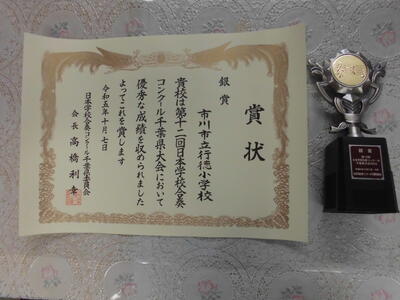 賞状
銀賞
市川市立行徳小学校
貴校は第十二回日本学校合奏
コンクール千葉県大会において
優秀な成績を収められました
よってこれを賞します
令和五年十月七日
日本学校合奏コンクール千葉県委員会
会長 高橋利幸
銀賞